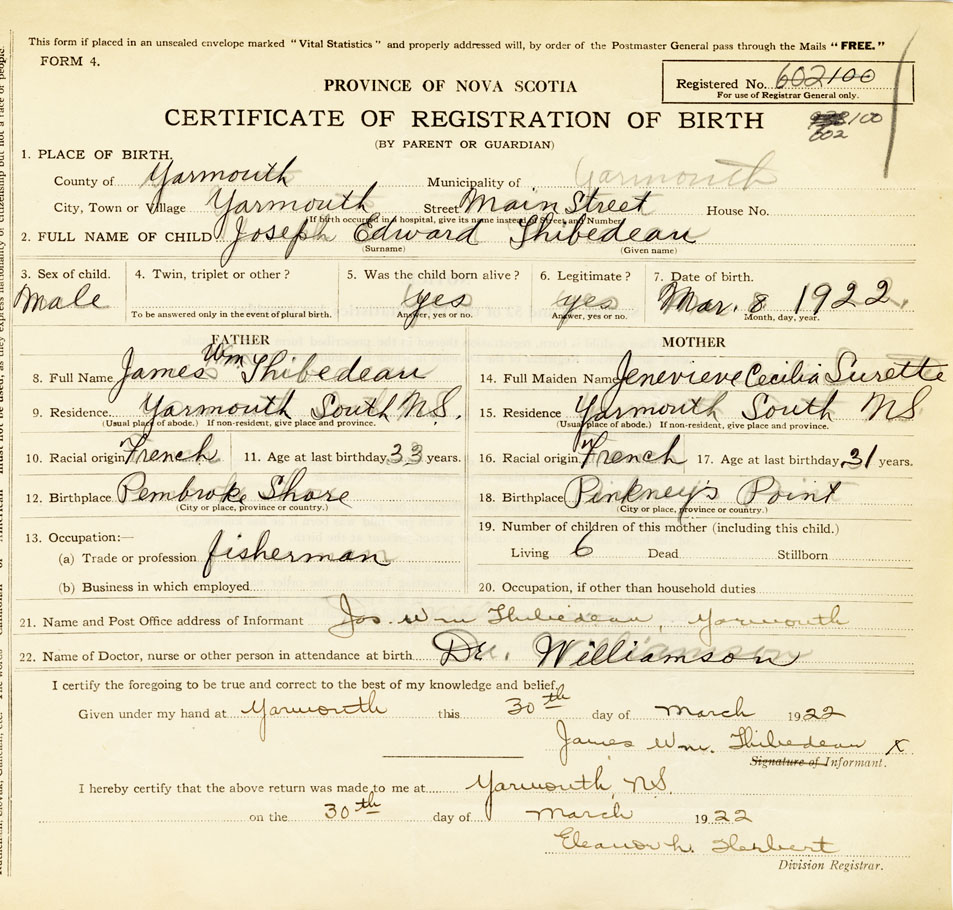 This form if placed in an unsealed envelope marked "Vital Statistics" and properly addressed will, by order of the Postmaster General pass through the Mails "FREE."
FORM 4.
Registered No. 602100
For use of Registrar General only.
PROVINCE OF NOVA SCOTIA
CERTIFICATE OF REGISTRATION OF BIRTH
100
602
(BY PARENT OR GUARDIAN)
1. PLACE OF BIRTH.
County of Yarmouth Municipality of Yarmouth
City, Town or Village Yarmouth Street Main Street House No.
If birth occurred in a hospital, give its name instead of Street and Number
2. FULL NAME OF CHILD Joseph Edward Thibedeau
(Surname) (Given name)
3. Sex of child. 4. Twin, triplet or other? 5. Was the child born alive? 6. Legitimate? 7. Date of birth.
Male yes yes Mar. 8 1922.
To be answered only in the event of plural birth. Answer, yes or no. Answer, yes or no. Month, day, year.
FATHER MOTHER
8. Full Name James Wm Thibedeau 14. Full Maiden Name Jenevieve Cecilia Surette
9. Residence Yarmouth South N.S. 15. Residence Yarmouth South NS
(Usual place of abode.) If non-resident, give place and province. (Usual place of abode.) If non-resident, give place and province.
10. Racial origin French 11. Age at last birthday 33 years. 16. Racial origin French 17. Age at last birthday 31 years.
12. Birthplace Pembroke Shore 18. Birthplace Pinkney's Point
(City or place, province or country.) (City or place, province or country.)
13. Occupation:— 19. Number of children of this mother (including this child.)
(a) Trade or profession fisherman Living 6 Dead Stillborn
(b) Business in which employed 20. Occupation, if other than household duties
21. Name and Post Office address of Informant Jas. Wm Thibedeau, Yarmouth
22. Name of Doctor, nurse or other person in attendance at birth Dr. Williamson
I certify the foregoing to be true and correct to the best of my knowledge and belief.
Given under my hand at Yarmouth this 30th day of March 1922
James Wm. Thibedeau X
Signature of Informant.
I hereby certify that the above return was made to me at Yarmouth, N.S.
on the 30th day of March 1922
Eleanor L. Herbert
Division Registrar.